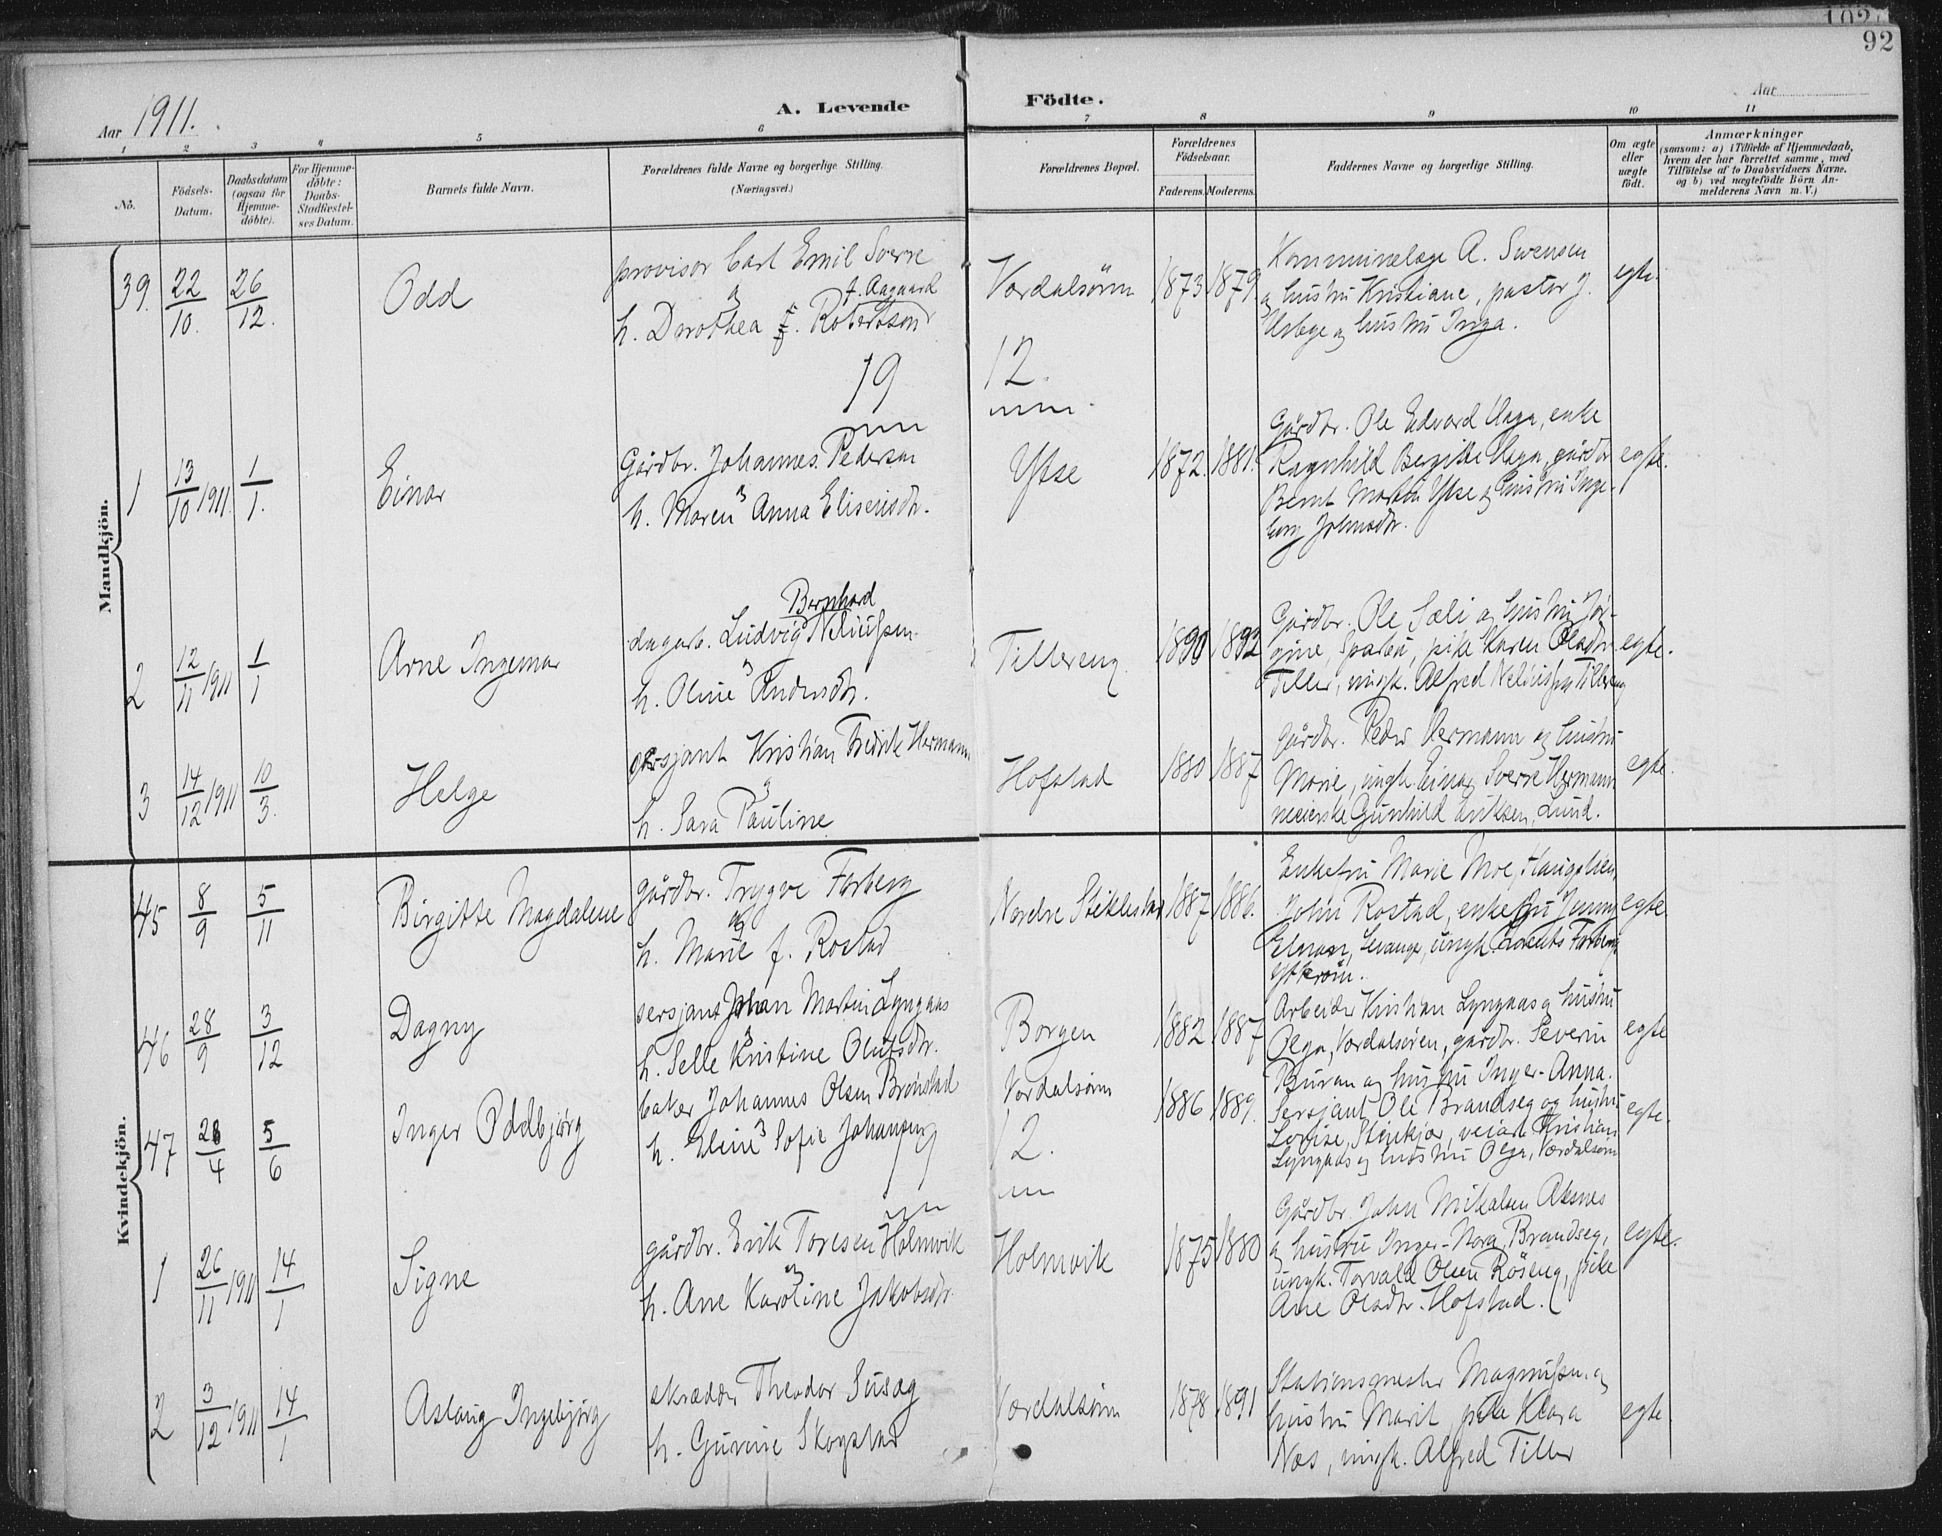 102
92
Aar 1911.
A. Levende Födte.
Aar
1 2 3 4 5 6 7 8 9 10 11
No.
Födsels-Datum.
Daabsdatum (ogsaa for Hjemmedöbte).
For Hjemmedöbte: Daabs-Stadfæstelses Datum.
Barnets fulde Navn.
Forældrenes fulde Navne og borgerlige Stilling. (Næringsvei.)
Forældrenes Bopæl.
Forældrenes Födselsaar.
Faderens. Moderens.
Faddernes Navne og borgerlige Stilling.
Om ægte eller uægte födt.
Anmærkninger
(saasom: a) i Tilfælde af Hjemmedaab, hvem der har forrettet samme, med Tilföielse af to Daabsvidners Navne. og b) ved uægtefödte Börn Anmelderens Navn m. V.)
Mandkjön.
39. 22/10. 26/12. Odd
provisor Carl Emil Sverre
og f. Aagaard
h. Dorothea f. Robertson
Værdalsören 1873 1879
Kommunelæge A. Svensen
og hustru Kristiane, pastor J.
og hustru Inga.
egte.
19 12.
1 13/10 1911. 1/1. Einar
Gårdbr. Johannes Pedersen
og
h. Maren Anna Eliseusdtr.
Ytse 1872. 1881.
Gårdbr. Ole Edvard Haga, enke
Ragnhild Bergitte Haga, gårdbr
Bernt Martin Ytse og hustru Inge-
borg Johnsdtr.
egte.
2 12/11 1911 1/1 Arne Ingemar
Bernhard
dagarb. Ludvig Neliussen
og
h. Oline Andersdtr.
Tillereng. 1890 1892
Gårdbr. Ole Sæli og hustru Jör-
gine, Sparbu, pike Karen Olsdtr
Tiller, ungk. Alfred Neliussen Tillereng
egte.
3 14/12 1911 10/3. Helge
sersjant Kristian Fredrik Hermann
og
h. Sara Pauline
Hofstad 1880 1887
Gårdbr. Peder Hermann og hustru
Marie, ungk. Einar Sverre Hermann
meierske Gunhild Eriksen, Lund.
egte.
Kvindekjön.
45 8/9 5/11 Birgitte Magdalene
gårdbr. Trygve Forberg
og
h. Marie f. Rostad
Nordre Stiklestad 1887 1886.
Enkefru Marie Moe, Haugslien,
John Rostad, enkefru Jenny
Levanger, ungk. Forberg
egte.
46 28/9 3/12 Dagny
sersjant Johan Martin Lyngaas
og
h. Selle Kristine Olufsdtr.
Borgen 1882 1887
Arbeider Kristian Lyngaas og hustru
Olga, Værdalsören, gårdbr. Severin
Buran og hustru Inger-Anna.
egte
47 28/4 5/6 Inger Oddbjørg
baker Johannes Olsen Brönstad
og
h. Oline Sofie Johansen
Værdalsören 1886 1889.
Sersjant Ole Brandseg og hustru
Lovise, Stenkjær, veiarb. Kristian
Lyngaas og hustru Olga, Værdalsören
egte.
19 12.
1 26/11 1911 14/1 Signe
gårdbr. Erik Toresen Holmvik
og
h. Ane Karoline Jakobsdtr.
Holmvik 1875 1880
Gårdbr. John Mikalsen Aksnes
og hustru Inger-Nora Brandseg,
ungk. Torvald Olsen Röseng, pike
Ane Olsdtr. Hofstad.
egte.
2 3/12 1911 14/1 Aslaug Ingebjørg
skrædder Theodor Susæg
h. Gurine Skogstad
Værdalsören 1878 1891
Stationsmester Magnussen og
hustru Marit, pike Klara
Næs, ungk. Alfred Tiller
egte.